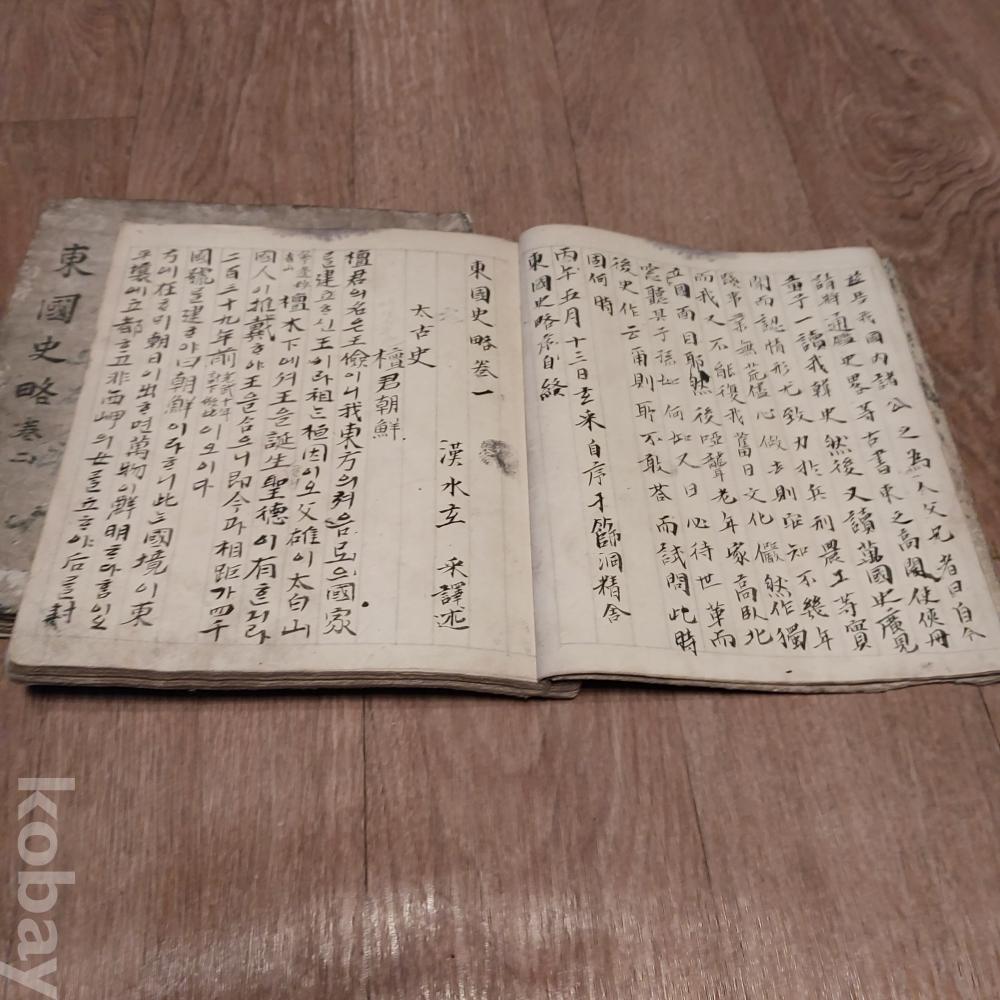 並告我國內諸公之爲人父兄者曰自今
請將通鑑史畧等古書東之高閣使俠冊
童子一讀我韓史然後又讀萬國史廣見
聞而認情形尤致力於兵刑農工等實
無荒 心做去則 知不幾年
而我又不能復我舊日文化儼然作獨
立國面目耶然後啞聾老年家高臥北
窓聽其子孫 何如又曰心待世革而
後史作云爾則耶不敢答而試問此時
國何時
丙午五月十三日玄采自序于節洞精舍
東國史略序自終
東國史略卷一
漢水玄 采譯述
太古史
檀君朝鮮
檀君의名은王儉이니我東方의처음民의國家
를建立호신王이라祖는桓因이오父雄이太白山
檀木下에셔王을誕生聖德이有호지라
國人이推戴호야王을삼으니即今과相距가四千
二百三十九年前 이오이다
國號를建호야曰朝鮮이라호니此는國境이東
方에在호야朝日이出호면萬物이鮮明호다홈이오
平壤에立都호고非西岬의女를立호야后를封
東國史略 卷二
kobay